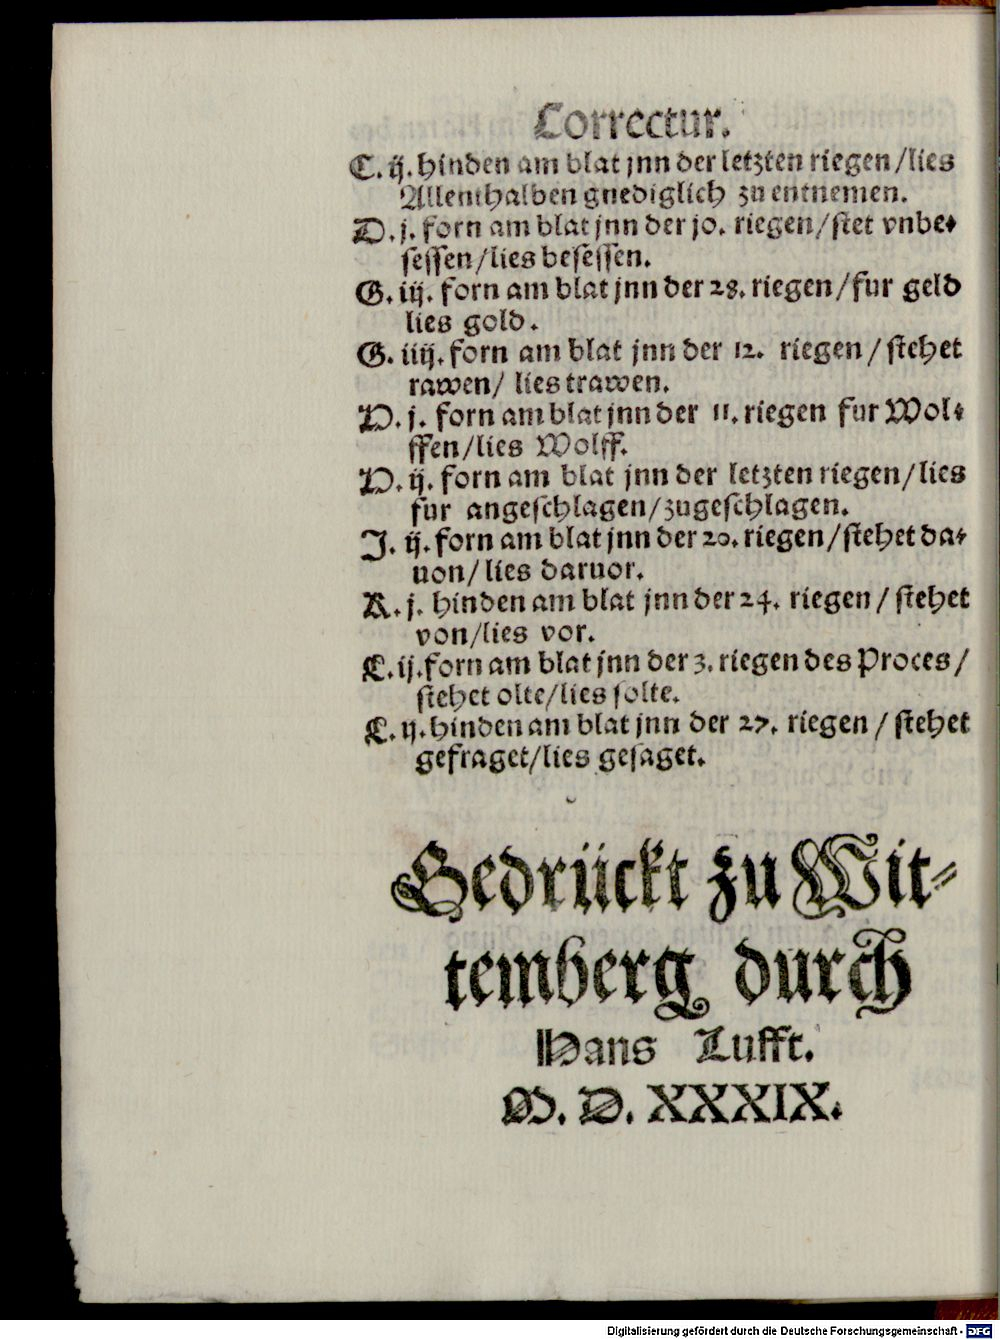 Correctur.
C. ij. hinden am blat jnn der letzten riegen/lies
Allenthalben gnediglich zu entnemen.
D. j. forn am blat jnn der jo. riegen/stet vnbe-
sessen/lies besessen.
G. iij. forn am blat jnn der 28. riegen/fur geld
lies gold.
G. iiij. forn am blat jnn der 12. riegen / stehet
rawen/ lies trawen.
H. j. forn am blat jnn der 11. riegen fur Wol-
ffen/lies Wolff.
H. ij. forn am blat jnn der letzten riegen/lies
fur angeschlagen/zugeschlagen.
J. ij. forn am blat jnn der 20. riegen/stehet da-
uon/ lies daruor.
K. j. hinden am blat jnn der 24. riegen / stehet
von/lies vor.
L. ij. forn am blat jnn der 3. riegen des Proces /
stehet olte/lies solte.
L. ij. hinden am blat jnn der 27. riegen / stehet
gefraget/lies gesaget.
Gedrückt zu Wit-
temberg durch
Hans Lufft.
M. D. XXXIX.
Digitalisierung gefördert durch die Deutsche Forschungsgemeinschaft - DFG